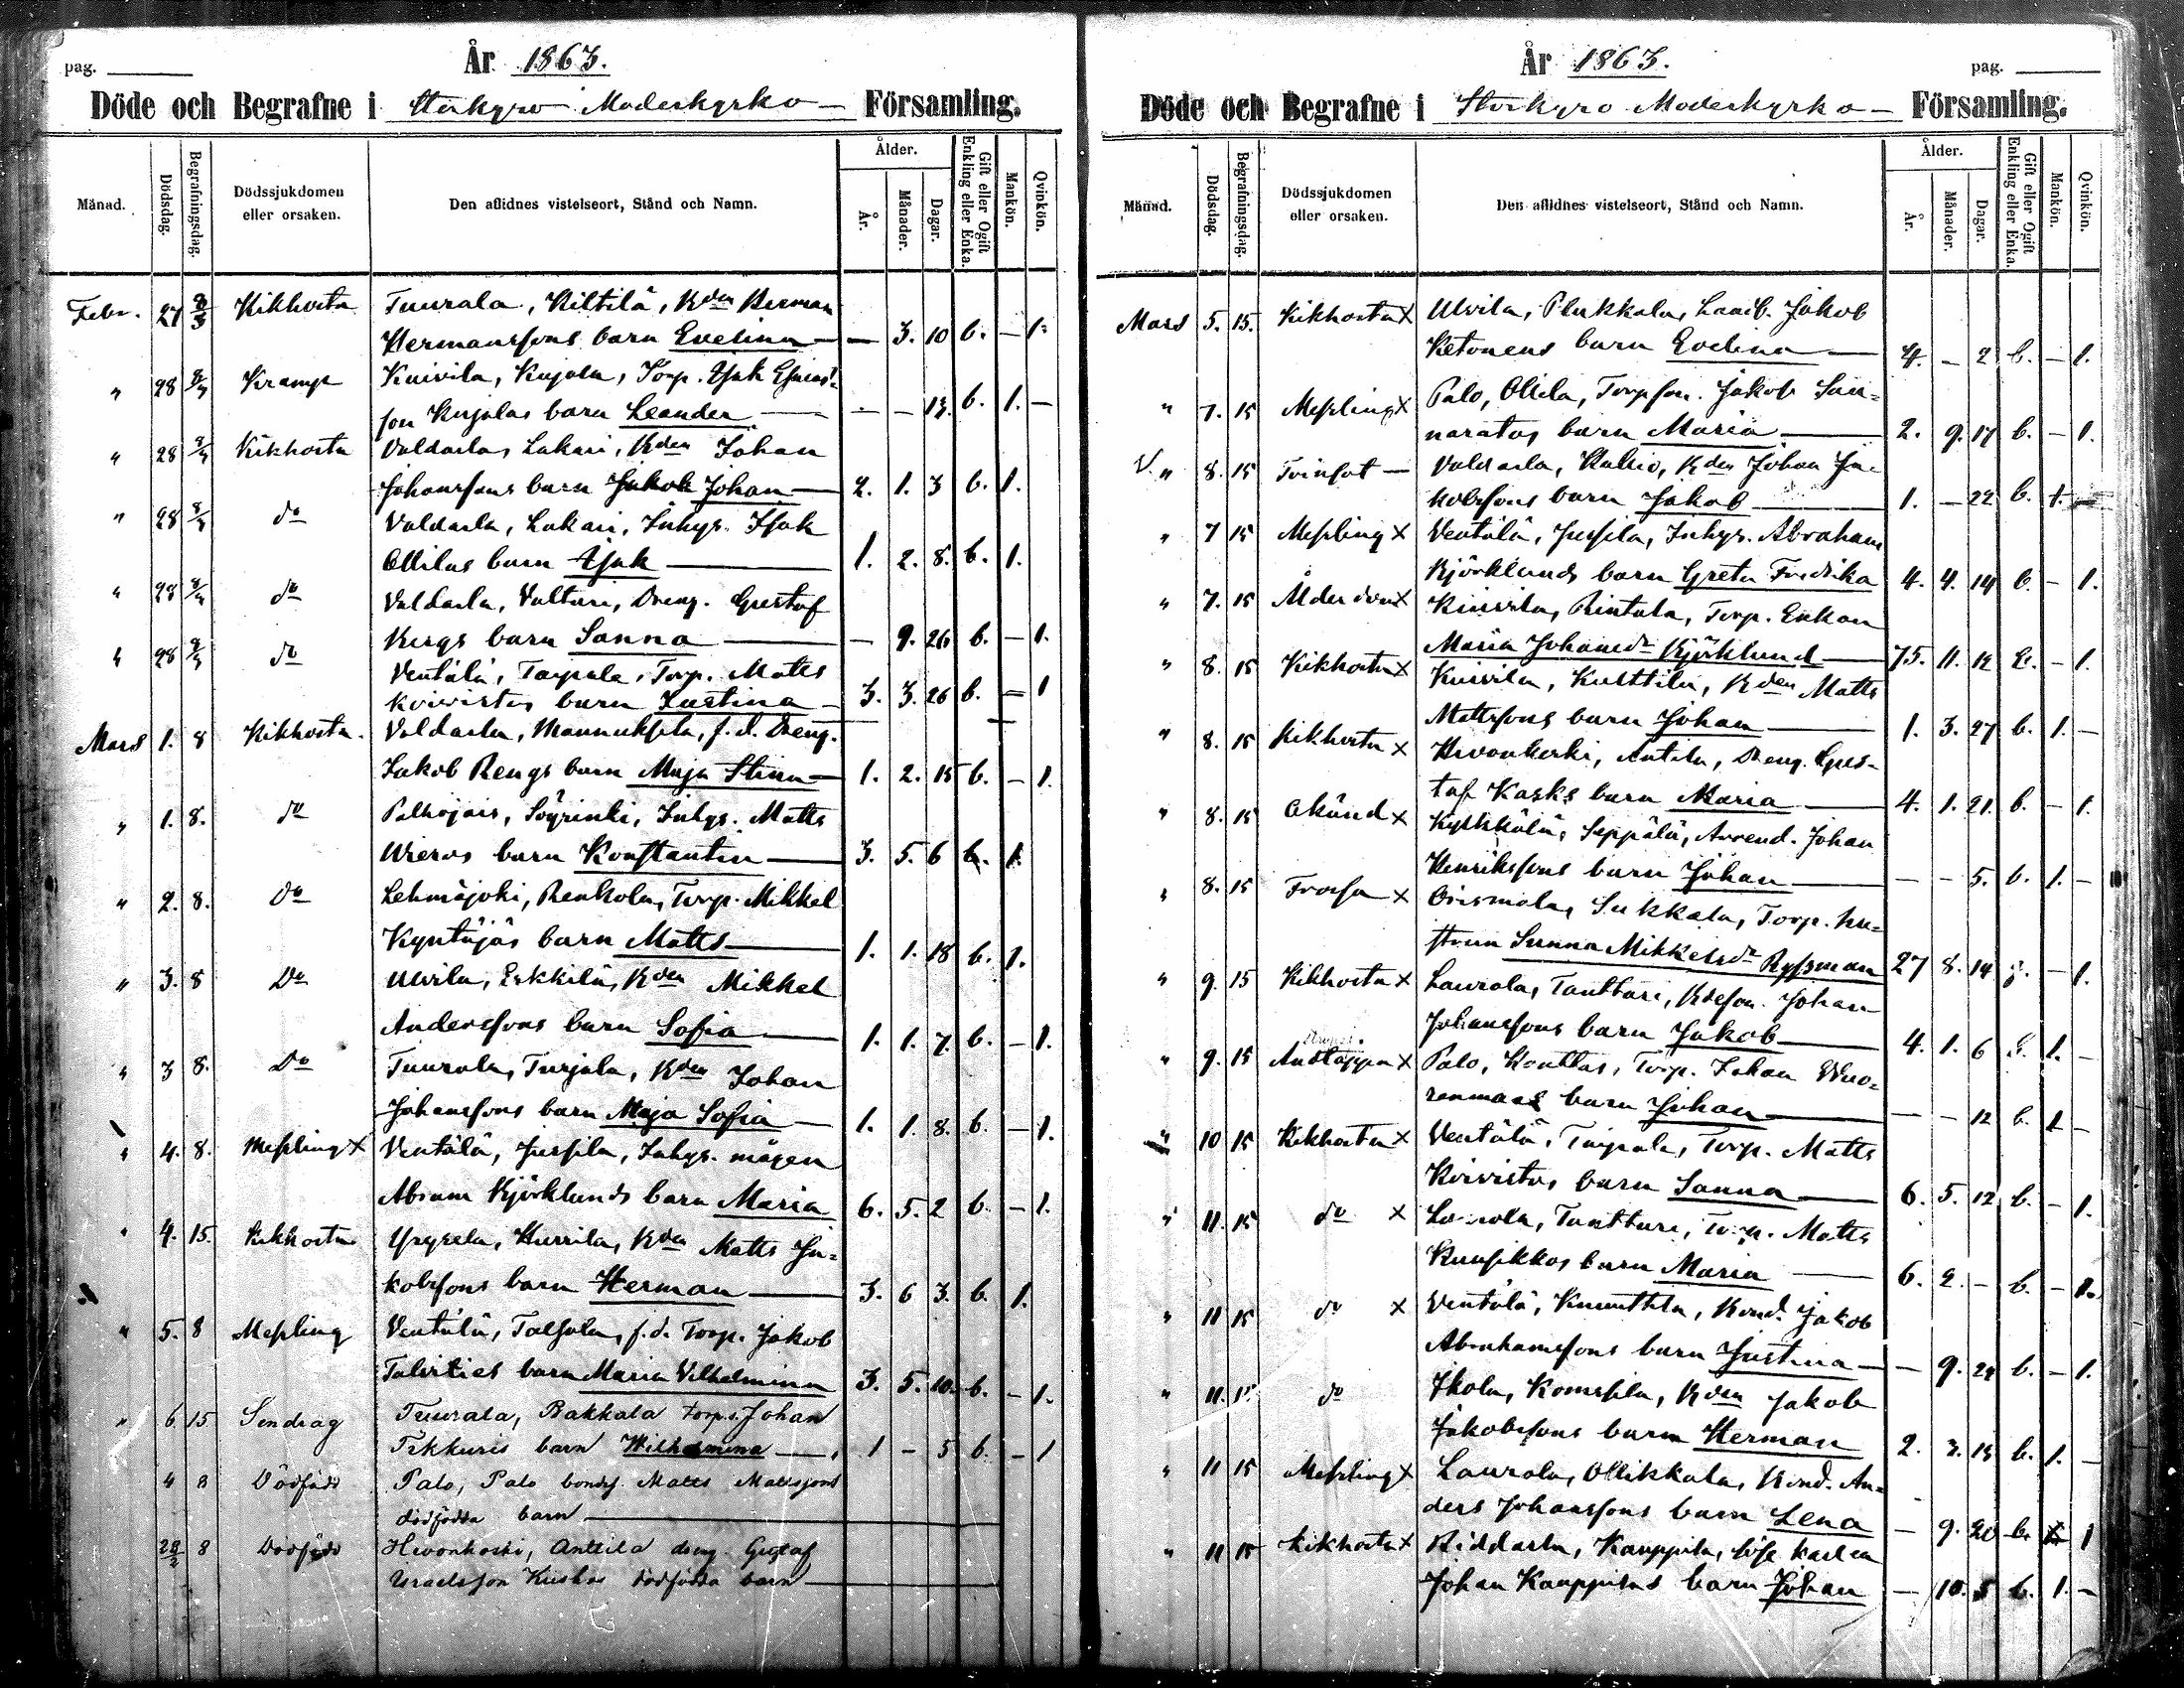 pag.
År 1863.
Döde och Begrafne i Storkyro Moderkyrko- Församling.
Månad. Dödsdag. Begrafningsdag. Dödssjukdomen eller orsaken. Den aflidnes vistelseort, Stånd och Namn. Ålder. År. Månader. Dagar. Gift eller Ogift Enkling eller Enka. Mankön. Qvinkön.
Febr. 27 8/3 Kikhosta Tuurala, Kiltilä, Bden Herman
Hermanssons barn Evelina — — 3. 10 b. — 1.
" 28 8/3 Kramp Kuivila, Kujala, Torp. Isak
son Kujalas barn Leander — - — 13. b. 1. —
" 28 8/3 Kikhosta Valdarla, Lakari, Bden Johan
Johanssons barn Jakob Johan — 2. 1. 3 b. 1.
" 28 8/3 do Valdarla, Lakari, Inhys. Isak
Ollilas barn Isak — 1. 2. 8. b. 1.
" 28 8/3 do Valdarla, Valtari, Dreng. Gustaf
Bergs barn Sanna — — 9. 26 b. — 1.
" 28 8/3 do Ventälä, Taipale, Torp. Matts
Koivistos barn Justina — 3. 3. 26 b. — 1
Mars 1. 8 Kikhosta. Valdarla, Mannuksela, f.d. Dreng.
Jakob Rengs barn Maja Stina — 1. 2. 15 b. — 1.
" 1. 8. do Palhojais, Söyrinki, Inhys. Matts
barn Konstantin — 3. 5. 6 b. 1.
" 2. 8. Do Lehmäjoki, Renkola, Torp. Mikkel
Kyntäjäs barn Matts — 1. 1. 18 b. 1.
" 3. 8 Do Ulvila, Erkkilä, Bden Mikkel
Anderssons barn Sofia — 1. 1. 7. b. — 1.
" 3 8. Do Tuurala, Turjala, Bden Johan
Johanssons barn Maja Sofia — 1. 1. 8. b. — 1.
" 4. 8. Messling x Ventälä, Jussila, Inhys. mågen
Abram Björklunds barn Maria 6. 5. 2 b. — 1.
" 4. 15. Kikhosta Yryselä, Hurrila, Bden Matts Ja=
kobssons barn Herman — 3. 6 3. b. 1.
" 5. 8 Messling Ventälä, Talsola, f.d. Torp. Jakob
Talvities barn Maria Vilhelmina 3. 5. 10. b. — 1.
" 6 15 Sendrag Tuurala, Bakkala torp.s. Johan
Tekkuris barn Wilhelmina — 1 - 5 b. — 1
4 8 Dödfödd Palo, Palo bonds. Matts Mattssons
dödfödda barn —
28/2 8 Dödfödd Hivonkoski, Anttila dreng. Gustaf
Israelsson Kuskas dödfödda barn —
År 1863. pag.
Döde och Begrafne i Storkyro Moderkyrko- Församling.
Månad. Dödsdag. Begrafningsdag. Dödssjukdomen eller orsaken. Den aflidnes vistelseort, Stånd och Namn. Ålder. År. Månader. Dagar. Gift eller Ogift Enkling eller Enka. Mankön. Qvinkön.
Mars 5. 15. Kikhosta x Ulvila, Plukkala, Jakob
Ketonens barn Evelina — 4. — 2 b. — 1.
" 7. 15 Messling x Palo, Ollila, Torpson. Jakob Sau=
naratas barn Maria — 2. 9. 17 b. — 1.
V. " 8. 15 Tvinsot — Valdarla, Bden Johan Ja=
kobssons barn Jakob — 1. — 22 b. 1. —
" 7 15 Messling x Ventälä, Jussila, Inhys. Abraham
Björklunds barn Greta Fredrika 4. 4. 14 b. — 1.
" 7. 15 Ålderdom x Kuivila, Rintala, Torp. Enkan
Maria Johansdr Björklund — 75. 11. 12 E. — 1.
" 8. 15 Kikhosta x Kuivila, Kulttila, Bden Matts
Mattssons barn Johan — 1. 3. 27 b. 1. —
" 8. 15 Kikhosta x Hivonkoski, Antila, Dreng. Gus=
taf Kasks barn Maria — 4. 1. 21. b. — 1.
" 8. 15 Okänd x Kylkkälä, Seppälä, Arrend. Johan
Henrikssons barn Johan — — — 5. b. 1. —
" 8. 15 Frossa x Orismala, Sukkala, Torp. hu=
strun Sanna Mikkelsdr Ryssman 27 8. 14 g. — 1.
" 9. 15 Kikhosta x Laurola, Tanttari, Bdeson. Johan
Johanssons barn Jakob — 4. 1. 6 b. 1. —
" 9. 15 Andtäppa x Palo, Konttas, Torp. Johan Wuo=
renmaas barn Johan — — — 12 b. 1 —
" 10 15 Kikhosta x Ventälä, Taipale, Torp. Matts
Koivistos barn Sanna — 6. 5. 12 b. — 1.
" 11. 15 do x Laurola, Tanttari, Torp. Matts
Kuusikkos barn Maria — 6. 2. — b. — 1.
" 11 15 do x Ventälä, Knuuttila, Bond. Jakob
Abrahamssons barn Justina — — 9. 24 b. — 1.
" 11. 15. do Ikola, Komsila, Bden Jakob
Jakobssons barn Herman 2. 3. 13 b. 1. —
" 11 15 Messling x Laurola, Ollikkala, Bond. An=
ders Johanssons barn Lena — 9. 20 b. 1
" 11 15 Kikhosta x Riddarla, Kauppila, löse karlen
Johan Kauppilas barn Johan — 10. 5 b. 1. —